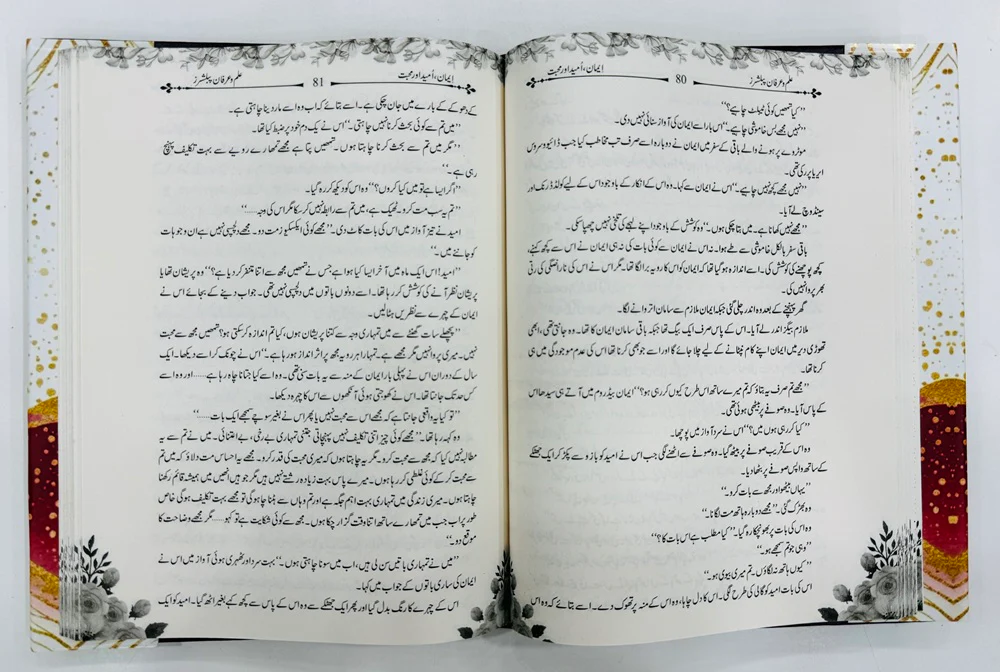 علم و عرفان پبلشرز
80
ایمان، اُمید اور محبت
"کیا تمھیں کوئی ٹیبلٹ چاہیے؟"
"نہیں مجھے بس خاموشی چاہیے۔" اس بار اسے ایمان کی آواز سنائی نہیں دی۔
موٹروے پر ہونے والے باقی کے سفر میں ایمان نے دوبارہ اسے صرف تب مخاطب کیا جب ڈائیوو سروس
ایریا پر رکی تھی۔
"نہیں مجھے کچھ نہیں چاہیے۔" اس نے ایمان سے کہا۔ وہ اس کے انکار کے باوجود اس کے لیے کولڈ ڈرنک اور
سینڈوچ لے آیا۔
"مجھے نہیں کھانا ہے۔ میں بتا چکی ہوں۔" وہ کوشش کے باوجود اپنے لہجے کی تلخی نہیں چھپا سکی۔
باقی سفر بالکل خاموشی سے طے ہوا۔ نہ اس نے ایمان سے کوئی بات کی نہ ہی ایمان نے اس سے کچھ کہنے،
کچھ پوچھنے کی کوشش کی۔ اسے اندازہ ہو گیا تھا کہ ایمان کو اس کا رویہ برا لگا تھا۔ مگر اس نے اس کی ناراضگی کی رتی
بھر پروا نہیں کی۔
گھر پہنچنے کے بعد وہ اندر چلی گئی جبکہ ایمان ملازم سے سامان اتروانے لگا۔
ملازم بیگز اندر لے آیا۔ اس کے پاس صرف ایک بیگ تھا جبکہ باقی سامان ایمان کا تھا۔ وہ جانتی تھی، ابھی
تھوڑی دیر میں ایمان اپنے کام نپٹانے کے لیے چلا جائے گا اور اسے جو بھی کرنا تھا اس کی عدم موجودگی میں ہی
کرنا تھا۔
"مجھے تم صرف یہ بتاؤ کہ تم میرے ساتھ اس طرح کیوں کر رہی ہو؟" ایمان بیڈ روم میں آتے ہی سیدھا اس
کے پاس آیا۔ وہ صوفے پر بیٹھی ہوئی تھی۔
"کیا کر رہی ہوں میں؟" اس نے سرد آواز میں پوچھا۔
وہ اس کے قریب صوفے پر بیٹھ گیا۔ وہ صوفے سے اٹھنے لگی جب اس نے امید کو بازو سے پکڑ کر ایک جھٹکے
کے ساتھ واپس صوفے پر بٹھا دیا۔
"یہاں بیٹھو اور مجھ سے بات کرو۔"
وہ بھڑک گئی۔ "مجھے دوبارہ ہاتھ مت لگانا۔"
وہ اس کی بات پر بھونچکا رہ گیا۔ "کیا مطلب ہے اس بات کا؟"
"وہی جو تم سمجھے ہو۔"
"کیوں ہاتھ نہ لگاؤں۔ تم میری بیوی ہو۔"
اس کی بات امید کو گالی کی طرح لگی۔ اس کا دل چاہا، وہ اس کے منہ پر تھوک دے۔ اسے بتائے کہ وہ اس
علم و عرفان پبلشرز
81
ایمان، اُمید اور محبت
کے دھوکے کے بارے میں جان چکی ہے۔ اسے بتائے کہ اب وہ اسے مار دینا چاہتی ہے۔
"میں تم سے کوئی بحث کرنا نہیں چاہتی۔" اس نے یک دم خود پر ضبط کیا تھا۔
"مگر میں تم سے بحث کرنا چاہتا ہوں۔ تمھیں پتا ہے مجھے تمھارے رویے سے بہت تکلیف پہنچ
رہی ہے۔"
"اگر ایسا ہے تو میں کیا کروں؟" وہ اس کو دیکھ کر رہ گیا۔
"تم یہ سب مت کرو۔ ٹھیک ہے، میں تم سے رابطہ نہیں کر سکا مگر اس کی وجہ......"
امید نے تیز آواز میں اس کی بات کاٹ دی۔ "مجھے کوئی ایکسکیوز مت دو۔ مجھے دلچسپی نہیں ہے ان وجوہات
کو جاننے میں۔"
"امید! اس ایک ماہ میں آخر ایسا کیا ہوا ہے جس نے تمھیں مجھ سے اتنا متنفر کر دیا ہے؟" وہ پریشان تھا یا
پریشان نظر آنے کی کوشش کر رہا تھا۔ اسے دونوں باتوں میں دلچسپی نہیں تھی۔ جواب دینے کے بجائے اس نے
ایمان کے چہرے سے نظریں ہٹا لیں۔
"پچھلے سات گھنٹے سے میں تمہاری وجہ سے کتنا پریشان ہوں، کیا تم اندازہ کر سکتی ہو؟ تمھیں مجھ سے محبت
نہیں۔ میری پروا نہیں مگر مجھے ہے۔ تمہارا ہر رویہ مجھ پر اثر انداز ہو رہا ہے۔" اس نے چونک کر اسے دیکھا۔ ایک
سال کے دوران اس نے پہلی بار ایمان کے منہ سے یہ بات سنی تھی۔ وہ اسے کیا جتانا چاہ رہا ہے...... اور وہ اسے
کس حد تک جانتا تھا۔ اس نے کھوجتی ہوئی آنکھوں سے اس کا چہرہ دیکھا۔
"تو کیا یہ واقعی جانتا ہے کہ مجھے اس سے محبت نہیں یا پھر اس نے بغیر سوچے سمجھے ایک بات......"
وہ کہہ رہا تھا۔ "مجھے کوئی چیز اتنی تکلیف نہیں پہنچاتی جتنی تمہاری بے رخی، بے اعتنائی۔ میں نے تم سے یہ
مطالبہ نہیں کیا کہ مجھ سے محبت کرو۔ مگر یہ چاہتا ہوں کہ میری محبت کی قدر کرو۔ مجھے یہ احساس مت دلاؤ کہ میں تم
سے محبت کر کے کوئی غلطی کر رہا ہوں۔ میرے پاس بہت زیادہ رشتے نہیں ہیں مگر جو ہیں انھیں میں ہمیشہ قائم رکھنا
چاہتا ہوں۔ میری زندگی میں تمہاری بہت اہم جگہ ہے اور تم وہاں سے ہٹنا چاہو گی تو مجھے بہت تکلیف ہو گی خاص
طور پر اب جب میں تمھارے ساتھ اتنا وقت گزار چکا ہوں۔ مجھ سے کوئی شکایت ہے تو کہو...... مگر مجھے وضاحت کا
موقع دو۔"
"میں نے تمہاری باتیں سن لی ہیں، اب میں سونا چاہتی ہوں۔" بہت سرد اور ٹھہری ہوئی آواز میں اس نے
ایمان کی ساری باتوں کے جواب میں کہا۔
اس کے چہرے کا رنگ بدل گیا اور پھر ایک جھٹکے سے وہ اس کے پاس سے کچھ کہے بغیر اٹھ گیا۔ امید کو ایک